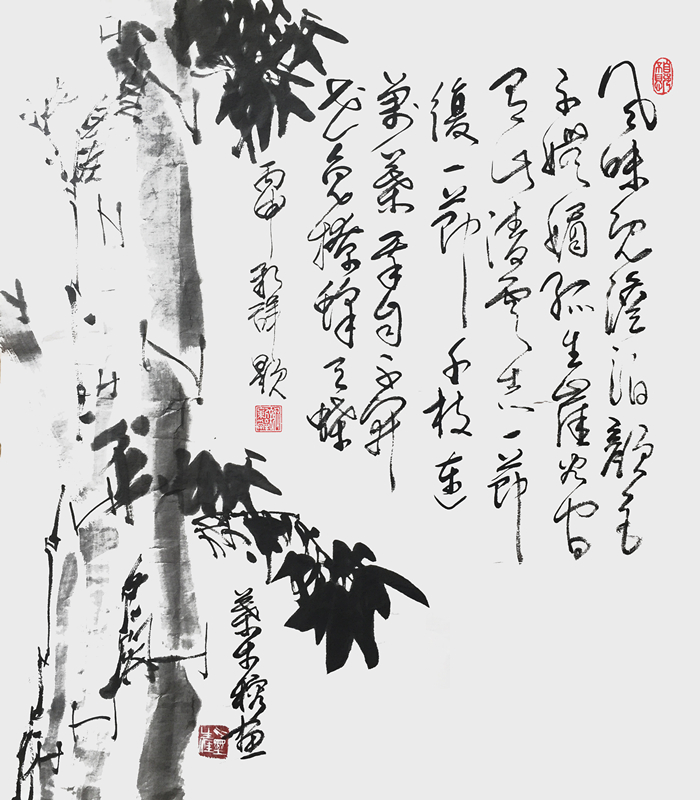 風味既澹泊顏色
不嫵媚孤生崖谷間
有此凌雲志一節
復一節千枝連
萬葉我自不開
花免撩蜂與蝶
丙申
題